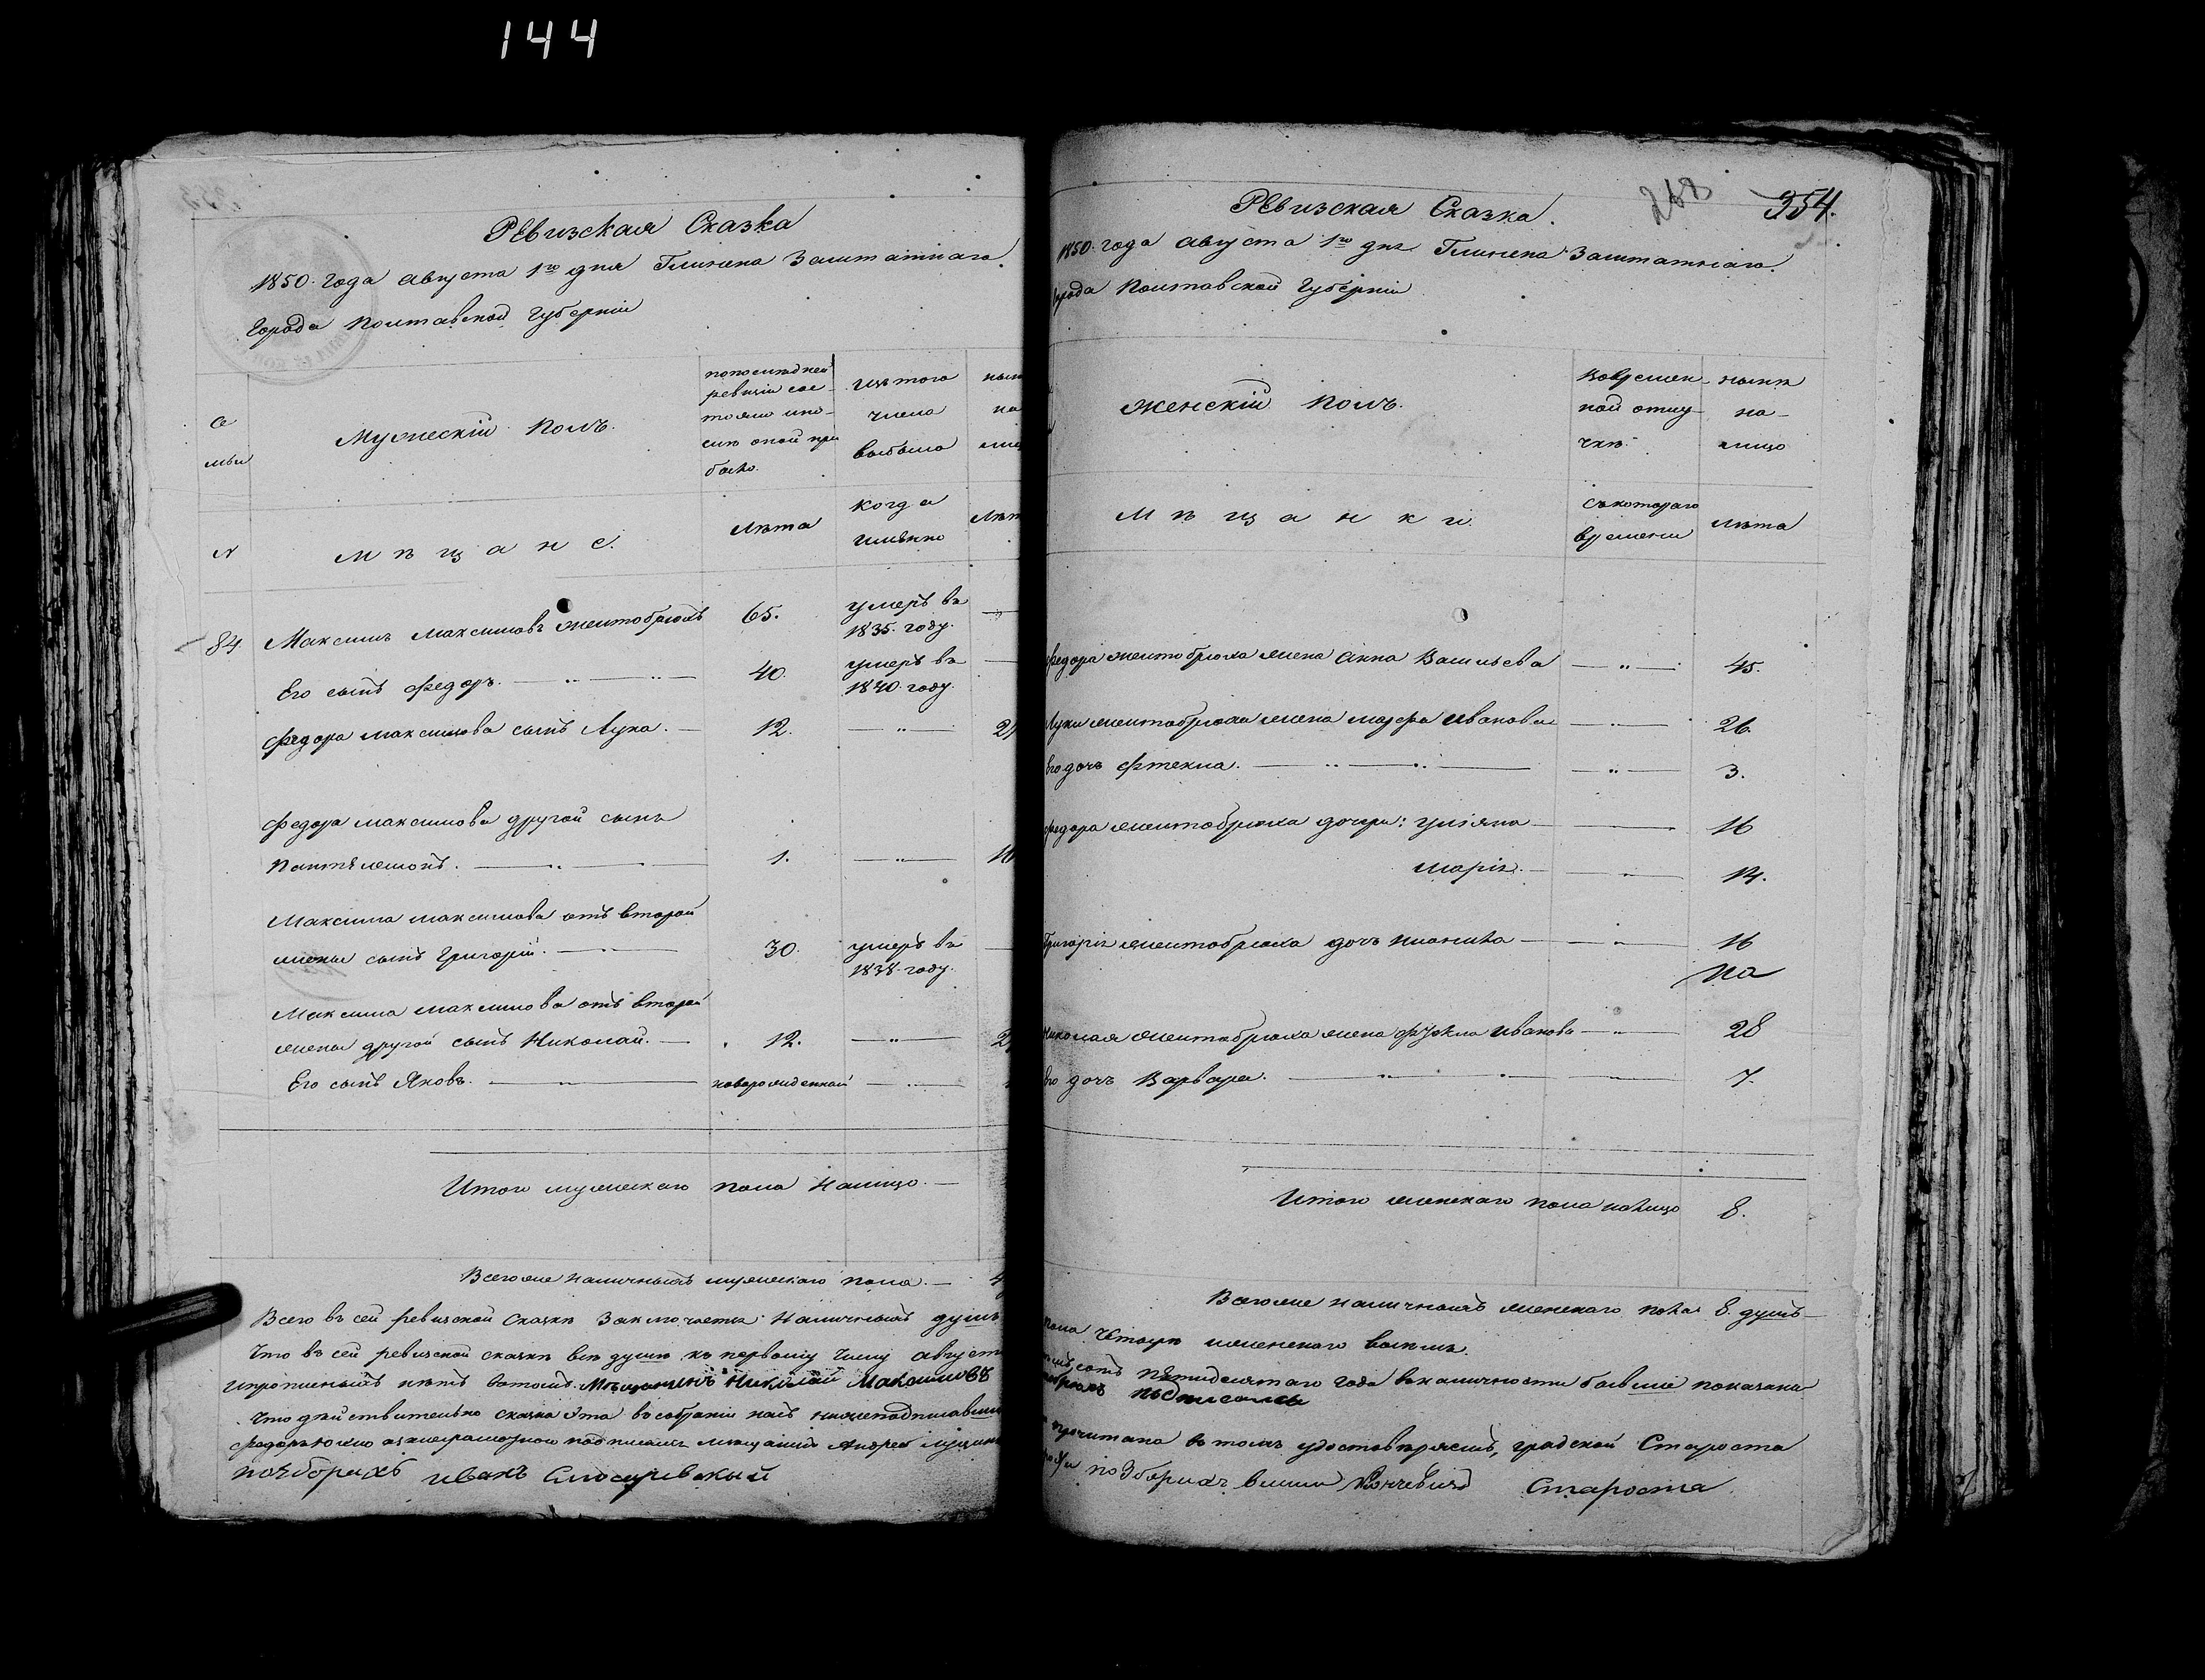 144
Ревизская Сказка
1850. года августа 1го дня Глинска Заштатнаго
города Полтавской губерніи
се
мьи
Мужескій полъ.
по последней
ревизіи сос-
тояло и по-
сле оной при
было.
изъ того
числа
выбыло
№
Мѣщане.
Лѣта
когда
именно
84
Максимъ Максимовъ Желтобрюхъ
65.
умеръ въ
1835. году.
Его сынъ Федоръ.
40.
умеръ въ
1840. году.
Федора Максимова сынъ Лука.
12.
Федора Максимова другой сынъ
Пантелемонъ.
1.
Максима Максимова отъ второй
жены сынъ Григорій.
30.
умеръ въ
1838. году.
Максима Максимова отъ второй
жены другой сынъ Николай.
12.
Его сынъ Яковъ.
новорожденной
Итого мужескаго пола налицо.
Всего же наличныхъ мужескаго пола. 4
Всего въ сей ревизской сказкѣ Заключается наличныхъ душъ
Что въ сей ревизской сказкѣ всѣ души къ первому числу август
и прописныхъ нѣтъ въ томъ. Мѣщанинъ Николай Максимовъ
Что дѣйствительно сказка эта въ собраніи насъ нижеподписавши
подписалъ мещанинъ Андрей
Иванъ
Ревизская Сказка.
268
354.
1850. года августа 1го дня Глинска Заштатнаго.
города Полтавской губерніи
Женскій полъ.
Во времен-
ной отлу-
чкѣ.
нынѣ
на-
лицо
Мѣщанки.
съ котораго
времени
лѣта
Федора Желтобрюха жена Анна Васильева
45.
Луки Желтобрюха жена Марфа Иванова
26.
Его дочь Фтекла.
3.
Федора Желтобрюха дочери: Уліяна
16
Марія.
14.
Григорія Желтобрюха дочь
16
на
Николая Желтобрюха жена Фіокла Иванова
28
Его дочь Варвара.
7.
Итого женскаго пола налицо
8.
Всего же наличныхъ женскаго пола 8. душъ
пола четыре женскаго восемь.
сотъ пятидесятаго года въ наличности бывшіе показаны
подписался
прочитана въ томъ удостовѣряемъ, градской Староста
Староста